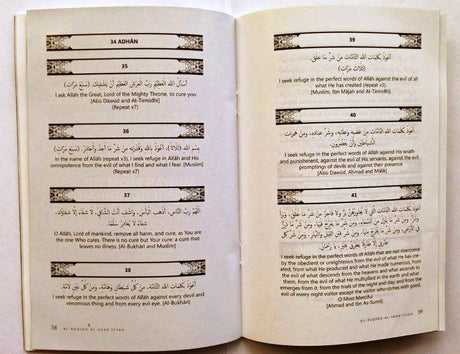 34 ADHĀN
35
أَسْأَلُ اللهَ الْعَظِيمَ رَبَّ الْعَرْشِ الْعَظِيمِ أَنْ يَشْفِيَكَ. (سَبْعَ مَرَّاتٍ)
I ask Allāh the Great, Lord of the Mighty Throne, to cure you
[Abū Dāwūd and At-Tirmidhi]
(Repeat x7)
36
بِسْمِ اللهِ (ثَلَاثًا)، أَعُوذُ بِاللهِ وَقُدْرَتِهِ مِنْ شَرِّ مَا أَجِدُ وَأُحَاذِرُ. (سَبْعَ مَرَّاتٍ)
In the name of Allāh (repeat x3), I seek refuge in Allāh and His
omnipotence from the evil of what I find and what I fear. [Muslim]
(Repeat x7)
37
اللَّهُمَّ رَبَّ النَّاسِ، أَذْهِبِ الْبَأْسَ، وَاشْفِ أَنْتَ الشَّافِي، لَا شِفَاءَ إِلَّا شِفَاؤُكَ،
شِفَاءً لَا يُغَادِرُ سَقَمًا.
O Allāh, Lord of mankind, remove all harm, and cure, as You are
the one Who cures. There is no cure but Your cure: a cure that
leaves no illness. [Al-Bukhāri and Muslim]
38
أَعُوذُ بِكَلِمَاتِ اللهِ التَّامَّةِ، مِنْ كُلِّ شَيْطَانٍ وَهَامَّةٍ، وَمِنْ كُلِّ عَيْنٍ لَامَّةٍ.
I seek refuge in the perfect words of Allāh against every devil and
venomous thing and from every evil eye. [Al-Bukhāri]
38
AL-RUQYAH AL-SHAR'IYYAH
39
أَعُوذُ بِكَلِمَاتِ اللهِ التَّامَّاتِ مِنْ شَرِّ مَا خَلَقَ.
(ثَلَاثَ مَرَّاتٍ)
I seek refuge in the perfect words of Allāh against the evil of all
what He has created (repeat x3).
[Muslim, Ibn Mājah and At-Tirmidhi]
40
أَعُوذُ بِكَلِمَاتِ اللهِ التَّامَّاتِ مِنْ غَضَبِهِ وَعِقَابِهِ، وَشَرِّ عِبَادِهِ، وَمِنْ هَمَزَاتِ
الشَّيَاطِينِ وَأَنْ يَحْضُرُونِ.
I seek refuge in the perfect words of Allāh against His wrath
and punishment, against the evil of His servants, against the evil
promptings of devils and against their presence
[Abū Dāwūd, Ahmad and Mālik]
41
أَعُوذُ بِكَلِمَاتِ اللهِ التَّامَّاتِ الَّتِي لَا يُجَاوِزُهُنَّ بَرٌّ وَلَا فَاجِرٌ مِنْ شَرِّ مَا خَلَقَ،
I seek refuge in the perfect words of Allāh that are not overcome
by the obedient or unrighteous from the evil of what He created,
from what He produced and what He made numerous, from
the evil of what descends from the heavens and what ascends to
them, from the evil of what He multiplied in the earth and what
emerges from it, from the trials of the night and day, and from the
evil of every night visitor except the visitor who comes with good.
O Most Merciful
[Ahmad and Ibn As-Sunni]
AL-RUQYAH AL-SHAR'IYYAH
39